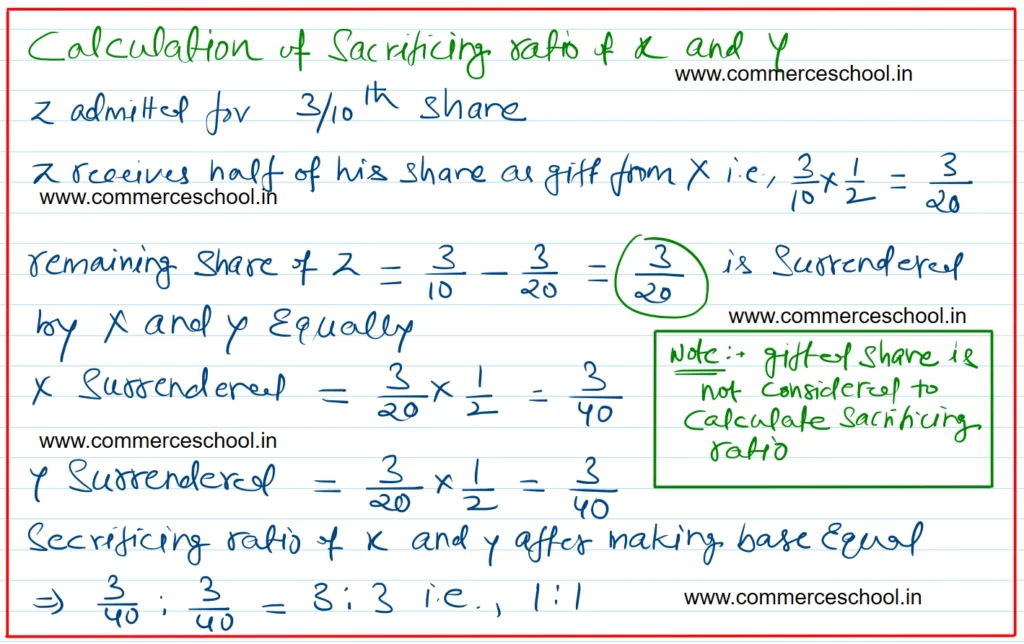 Calculation of Sacrificing ratio of X and Y
www.commerceschool.in
Z admitted for 3/10th share
Z receives half of his share as gift from X i.e., 3/10 × 1/2 = 3/20
www.commerceschool.in
remaining Share of Z = 3/10 - 3/20 = 3/20 is Surrendered
by X and Y Equally
www.commerceschool.in
Note :→ gifted share is
not considered to
Calculate Sacrificing
ratio
X Surrendered = 3/20 × 1/2 = 3/40
www.commerceschool.in
Y Surrendered = 3/20 × 1/2 = 3/40
Secrificing ratio of X and Y after making base Equal
⇒ 3/40 : 3/40 = 3 : 3 i.e., 1 : 1
www.commerceschool.in